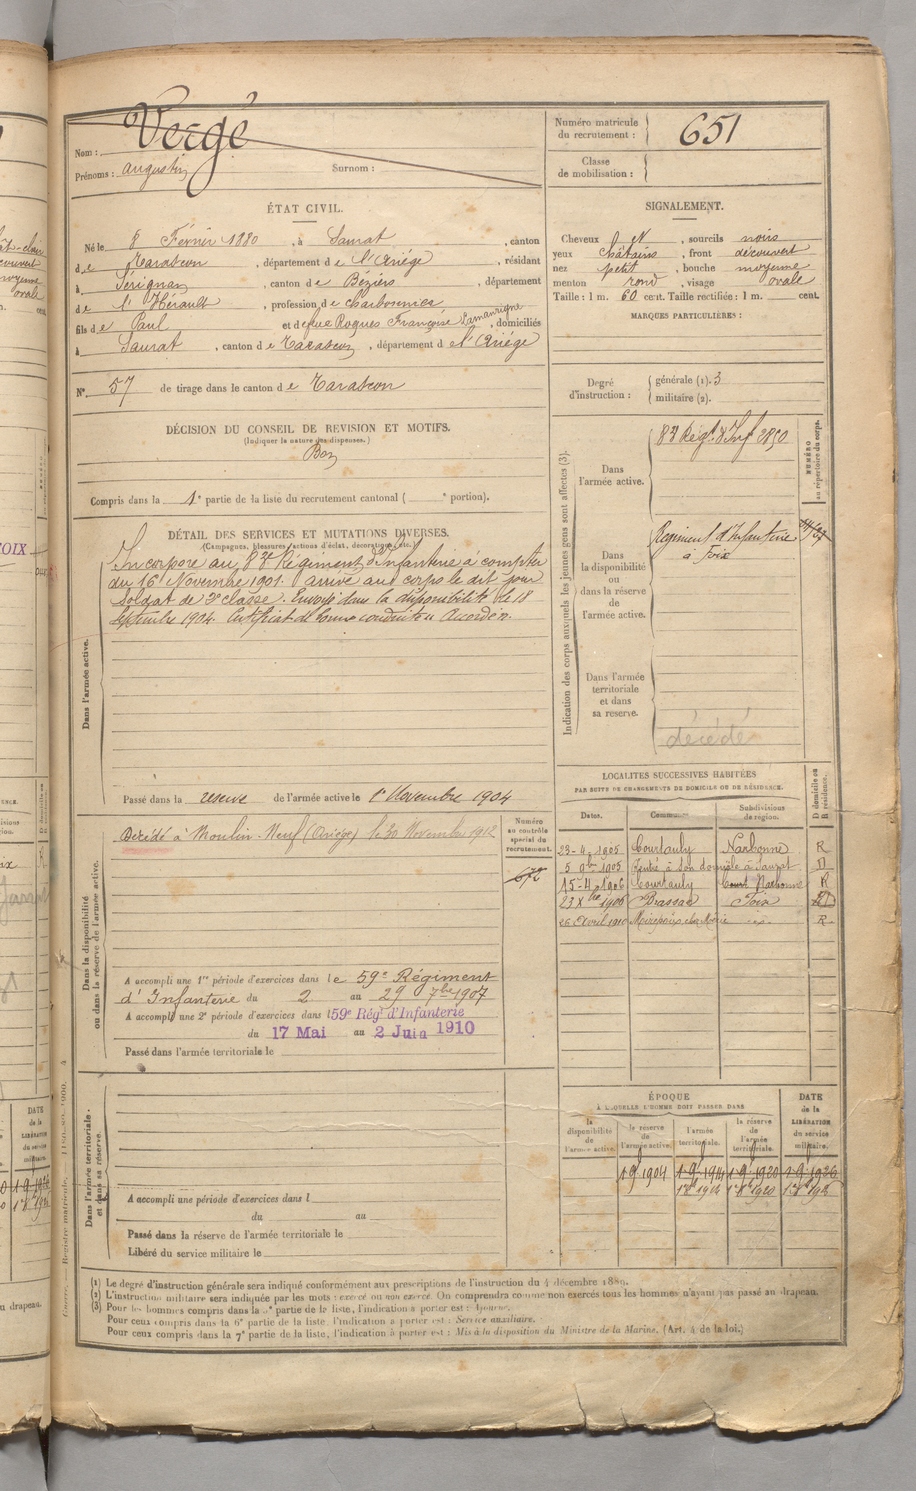 Nom : Vergé
Prénoms : Augustin Surnom :
Numéro matricule du recrutement : 651
Classe de mobilisation :
ÉTAT CIVIL.
Né le 8 Février 1880, à Saurat, canton
de Tarascon, département de l'Ariége, résidant
à Sérignan, canton de Béziers, département
de l'Hérault, profession de charbonnier
fils de Paul et de feue Rogues Françoise Lamanrigne, domiciliés
à Saurat, canton de Tarascon, département de l'Ariége
N° 57 de tirage dans le canton de Tarascon
SIGNALEMENT.
Cheveux et, sourcils noirs
yeux châtains, front découvert
nez petit, bouche moyenne
menton rond, visage ovale
Taille : 1 m. 60 cent. Taille rectifiée : 1 m. cent.
MARQUES PARTICULIÈRES :
Degré d'instruction : générale (1). 3
militaire (2).
DÉCISION DU CONSEIL DE REVISION ET MOTIFS.
(Indiquer la nature des dispenses.)
Bon
Compris dans la 1e partie de la liste du recrutement cantonal ( e portion).
DÉTAIL DES SERVICES ET MUTATIONS DIVERSES.
(Campagnes, blessures, actions d'éclat, décorations, etc.)
Dans l'armée active.
Incorporé au 83e Régiment d'Infanterie à compter
du 16 Novembre 1901. arrivé au corps le dit jour
Soldat de 2e classe. Envoyé dans la disponibilité le 18
Septembre 1904. Certificat de bonne conduite Accordé.
Passé dans la reserve de l'armée active le 1er Novembre 1904
Indication des corps auxquels les jeunes gens sont affectés (3).
NUMÉRO au répertoire du corps.
Dans l'armée active.
83 Régt d'Inf 2850
Dans la disponibilité ou dans la réserve de l'armée active.
Régiment d'Infanterie
à Foix
Dans l'armée territoriale et dans sa reserve.
décédé
Dans la disponibilité ou dans la réserve de l'armée active.
Décédé à Moulin-Neuf (Ariège) le 30 Novembre 1912
Numéro au contrôle spécial du recrutement.
672
A accompli une 1re période d'exercices dans le 59e Régiment
d'Infanterie du 2 au 29 7bre 1907
A accompli une 2e période d'exercices dans l 59e Régt d'Infanterie
du 17 Mai au 2 Juin 1910
Passé dans l'armée territoriale le
LOCALITES SUCCESSIVES HABITÉES
PAR SUITE DE CHANGEMENTS DE DOMICILE OU DE RÉSIDENCE.
Dates. Communes. Subdivisions de région. D domicile ou R résidence.
23-4-1905 Courtauly Narbonne R
5 9bre 1905 Rentré à son domicile à Saurat D
15-4-1906 Courtauly Narbonne R
23 Xbre 1906 Brassac Foix
26 Avril 1910 R
ÉPOQUE
À LAQUELLE L'HOMME DOIT PASSER DANS
la disponibilité de l'armée active.
la réserve de l'armée active.
l'armée territoriale.
la réserve de l'armée territoriale.
DATE de la LIBÉRATION du service militaire.
1 9 1904 1-9-1914 1-9-1920 1-9-1926
Dans l'armée territoriale et dans sa réserve.
A accompli une période d'exercices dans l
du au
Passé dans la réserve de l'armée territoriale le
Libéré du service militaire le
(1) Le degré d'instruction générale sera indiqué conformément aux prescriptions de l'instruction du 4 décembre 1889.
(2) L'instruction militaire sera indiquée par les mots : exercé ou non exercé. On comprendra comme non exercés tous les hommes n'ayant pas passé au drapeau.
(3) Pour les hommes compris dans la 5e partie de la liste, l'indication à porter est : Ajourné.
Pour ceux compris dans la 6e partie de la liste, l'indication à porter est : Service auxiliaire.
Pour ceux compris dans la 7e partie de la liste, l'indication à porter est : Mis à la disposition du Ministre de la Marine. (Art. 4 de la loi.)